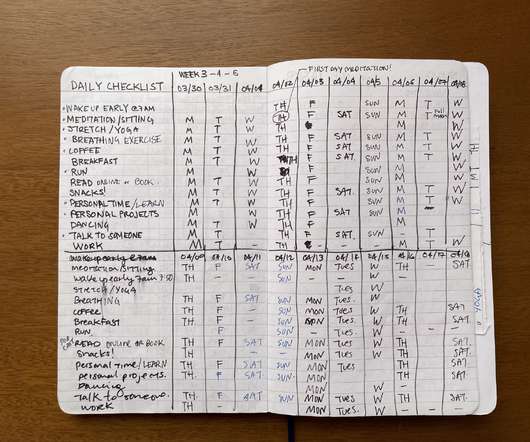 FIRST DAY MEDITATION!
WEEK 3-4-5
DAILY CHECKLIST 03/30 03/31 04/01 04/02 04/03 04/04 04/5 04/06 04/07 04/08
• WAKE UP EARLY @7AM TH F SUN M T W
• MEDITATION/SITTING M T W TH F SAT SUN M T Full moon W
• STRETCH/YOGA M T W TH SUN M T W
BREATHING EXERCISE M T W TH F SAT SUN M T W
• COFFEE M T W TH F SAT SUN M T W
BREAKFAST M T W TH F SAT SUN M T W
• RUN M T W
READ ONLINE or BOOK M T W TH F SUN M
SNACKS! M T W TH F SAT SUN M T W
• PERSONAL TIME/LEARN M T W TH F SUN M T W
• PERSONAL PROJECTS M T W TH F SAT SUN M
DANCING M T W TH F
• TALK TO SOMEONE M T W TH F SUN M T W
WORK M T – TH – – M T W
wake up early @ 7am 04/09 04/10 04/11 04/12 04/13 04/14 04/15 04/16 04/17 04/18
MEDITATION/SITTING TH F SAT SUN MON TUES W TH SAT
wake up early 7am 7:30 TH F – SUN – – – – –
STRETCH/YOGA TUES W
BREATHING TH F SAT SUN MON TUES. W
COFFEE TH F SUN MON TUES W TH SAT
Breakfast TH F SUN MON TUES W TH SAT.
RUN – – SUN – TUES. W – –
READ ONLINE OR BOOK TH F SAT SUN MON TUES W TH SAT.
Snacks! TH – MON W TH SAT.
Personal TIME/LEARN TH F SAT SUN MON TUES TH SAT.
personal projects. TH F SAT SUN MON SAT.
Dancing MON W –
Talk to someone TH. F SAT SUN MON TUES W TH SAT.
WORK TH – – – MON TUES. W TH – –